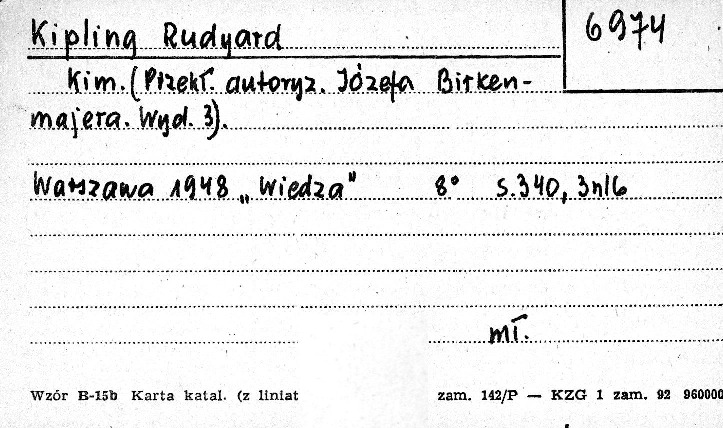 Kipling Rudyard
6974
Kim. (Przekł. autoryz. Józefa Birken-
majera. Wyd. 3).
Warszawa 1948 „Wiedza" 8° s.340, 3nlb
mł.
Wzór B-15b Karta katal. (z liniat
zam. 142/P — KZG 1 zam. 92 960000